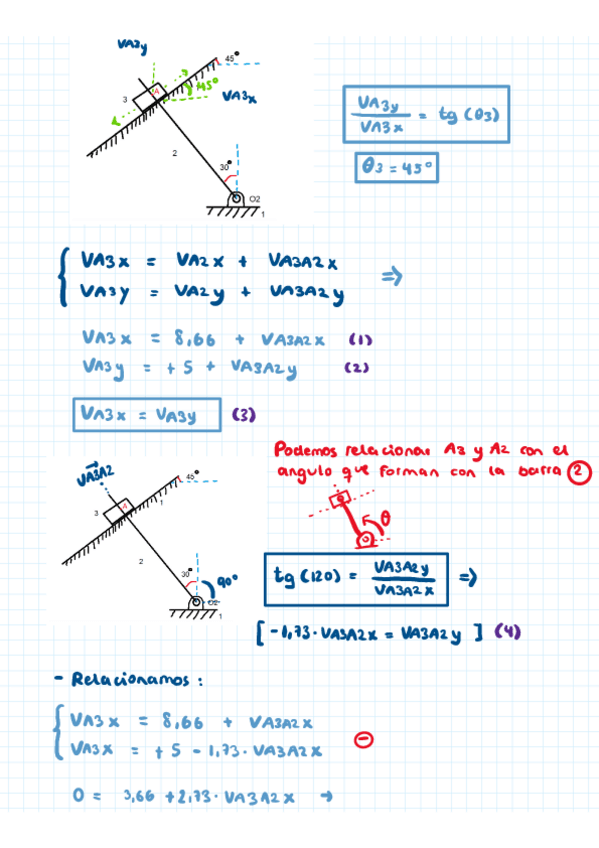 VA3y
45°
45°
VA3x
3
A
2
30°
O2
1
VA3y / VA3x = tg (θ3)
θ3 = 45°
VA3x = VA2x + VA3A2x
VA3y = VA2y + VA3A2y
=>
VA3x = 8,66 + VA3A2x (1)
VA3y = + 5 + VA3A2y (2)
VA3x = VA3y (3)
Podemos relacionar A3 y A2 con el
angulo que forman con la barra 2
VA3A2
45°
3
A
1
2
30°
90°
O2
1
θ
tg (120) = VA3A2y / VA3A2x =>
[ -1,73 · VA3A2x = VA3A2y ] (4)
- Relacionamos :
VA3x = 8,66 + VA3A2x
VA3x = + 5 - 1,73 · VA3A2x
-
0 = 3,66 + 2,73 · VA3A2x →